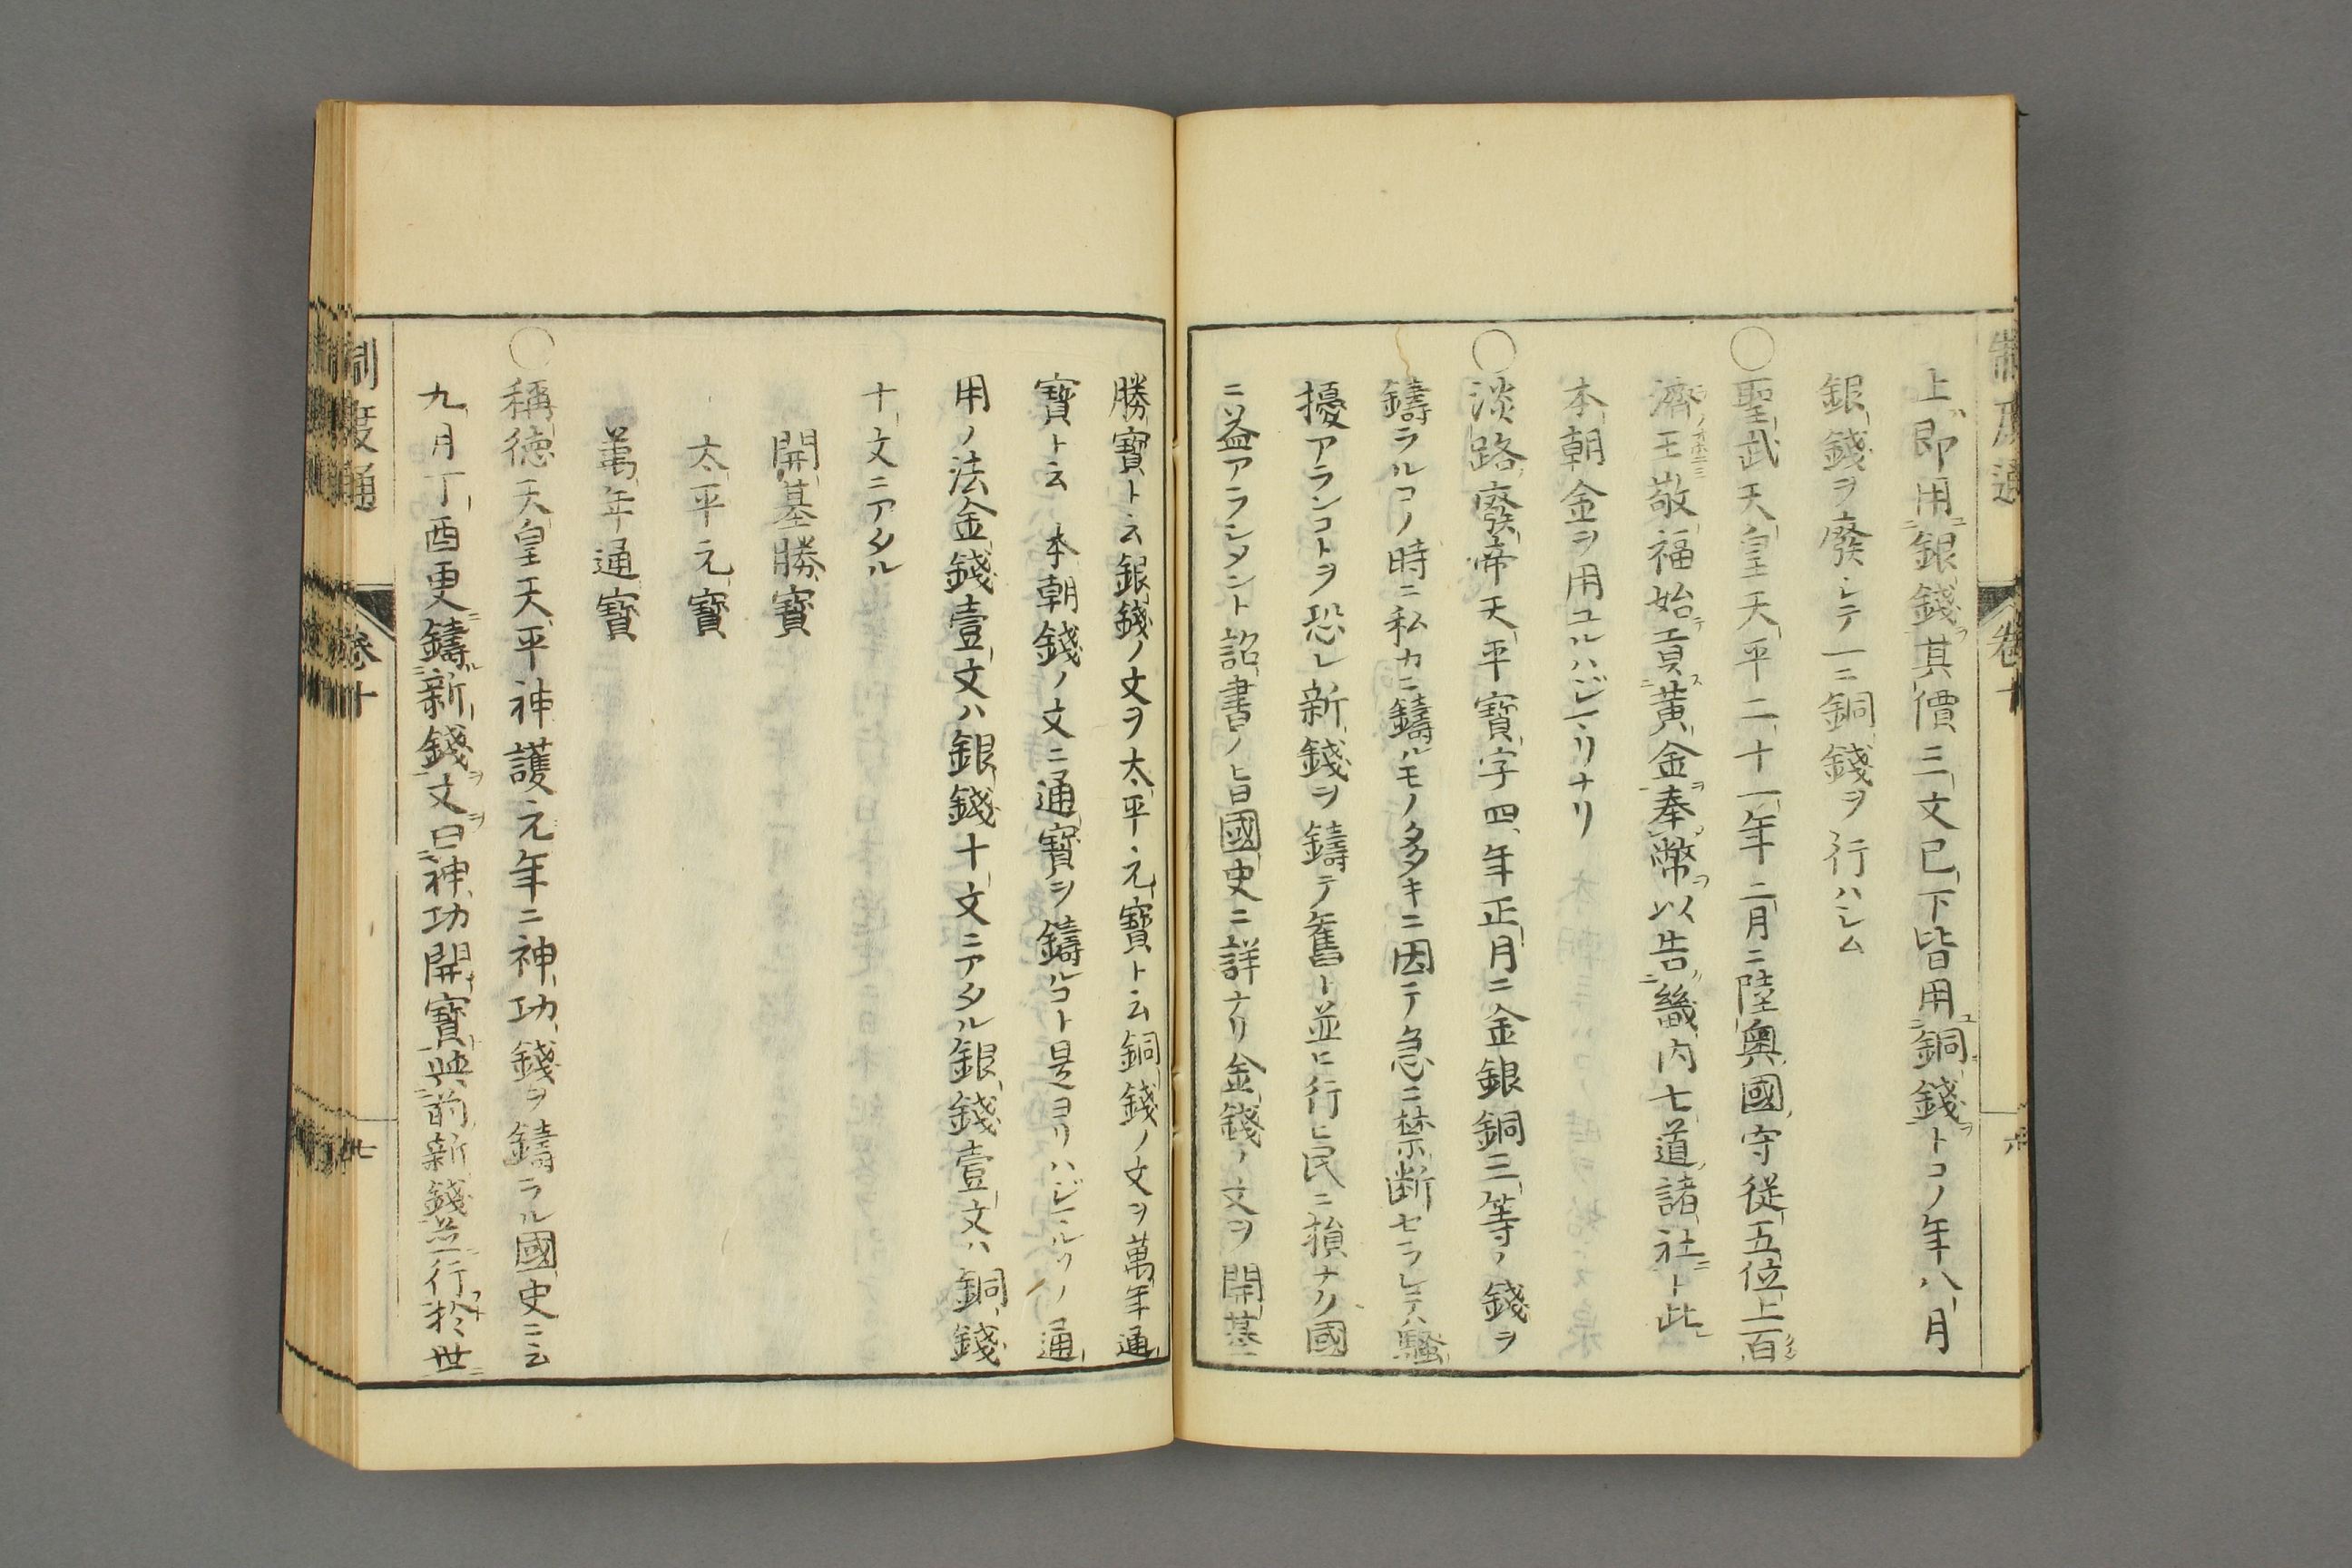 上即用銀錢其價三文已下皆用銅錢トコノ年八月
銀錢ヲ廢シテ一ニ銅錢ヲ行ハシム
○聖武天皇天平二十一年二月ニ陸奧國守從五位上百
濟王敬福始貢黄金奉幣以告畿内七道諸社ト此
本朝金ヲ用ユルハジマリナリ
○淡路廢帝天平寶字四年正月ニ金銀銅三等ノ錢ヲ
鑄ラルコノ時ニ私カニ鑄ルモノ多キニ因テ急ニ禁断セラレテハ騷
擾アランコトヲ恐レ新錢ヲ鑄テ舊ト並ヒ行ヒ民ニ損ナク國
ニ益アラシメント詔書ノ旨國史ニ詳ナリ金錢ノ文ヲ開基
勝寶ト云銀錢ノ文ヲ太平元寶ト云銅錢ノ文ヲ萬年通
寶ト云 本朝錢ノ文ニ通寶ヲ鑄ルコト是ヨリハジマルソノ通
用ノ法金錢壹文ハ銀錢十文ニアタル銀錢壹文ハ銅錢
十文ニアタル
開基勝寶
太平元寶
萬年通寶
○稱徳天皇天平神護元年ニ神功錢ヲ鑄ラル國史ニ云
九月丁酉更鑄新錢文曰神功開寶與前新錢並行於世
制度通
卷十
七
制度通
卷十
六